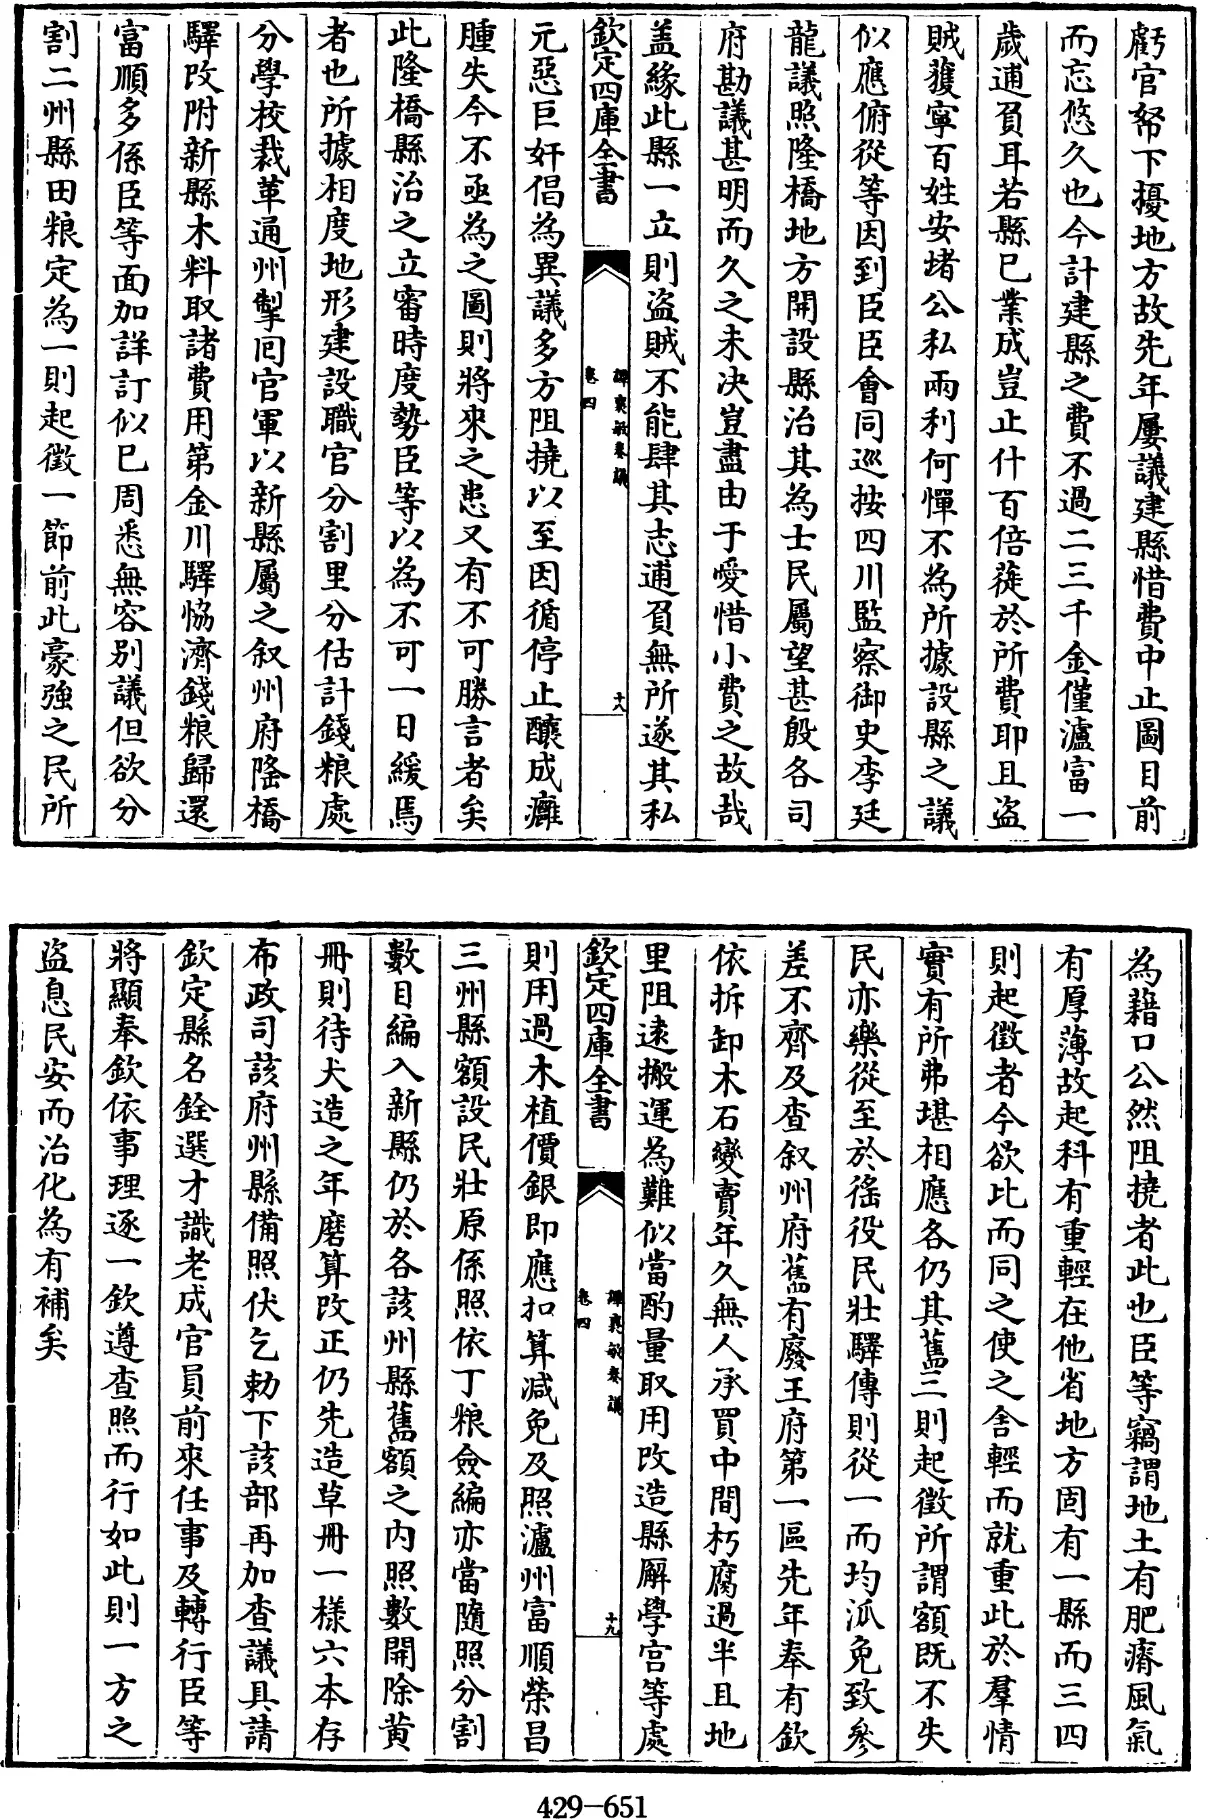 虧官帑下擾地方故先年屢議建縣惜費中止圖目前
而忘悠久也今計建縣之費不過二三千金僅瀘富一
歲逋負耳若縣已業成豈止什百倍蓰於所費耶且盜
賊獲寧百姓安堵公私兩利何憚不為所據設縣之議
似應俯從等因到臣臣會同巡按四川監察御史李廷
龍議照隆橋地方開設縣治其為士民屬望甚殷各司
府勘議甚明而久之未決豈盡由于愛惜小費之故哉
蓋緣此縣一立則盜賊不能肆其志逋負無所遂其私
欽定四庫全書
譚襄敏奏議
卷四
十八
元惡巨奸倡為異議多方阻撓以至因循停止釀成癰
腫失今不亟為之圖則將來之患又有不可勝言者矣
此隆橋縣治之立審時度勢臣等以為不可一日緩焉
者也所據相度地形建設職官分割里分估計錢粮處
分學校裁革通州掣囘官軍以新縣屬之叙州府隆橋
驛改附新縣木料取諸費用第金川驛恊濟錢粮歸還
富順多係臣等面加詳訂似已周悉無容別議但欲分
割二州縣田粮定為一則起徵一節前此豪強之民所
為藉口公然阻撓者此也臣等竊謂地土有肥瘠風氣
有厚薄故起科有重輕在他省地方固有一縣而三四
則起徵者今欲比而同之使之舍輕而就重此於羣情
實有所弗堪相應各仍其舊三則起徵所謂額既不失
民亦樂從至於徭役民壯驛傳則從一而均泒免致參
差不齊及查叙州府舊有廢王府第一區先年奉有欽
依拆卸木石變賣年久無人承買中間朽腐過半且地
里阻遠搬運為難似當酌量取用改造縣廨學宮等處
欽定四庫全書
譚襄敏奏議
卷四
十九
則用過木植價銀即應扣算減免及照瀘州富順榮昌
三州縣額設民壯原係照依丁粮僉編亦當隨照分割
數目編入新縣仍於各該州縣舊額之內照數開除黃
冊則待大造之年磨算改正仍先造草冊一樣六本存
布政司該府州縣備照伏乞勅下該部再加查議具請
欽定縣名銓選才識老成官員前來任事及轉行臣等
將顯奉欽依事理逐一欽遵查照而行如此則一方之
盜息民安而治化為有補矣
429—651